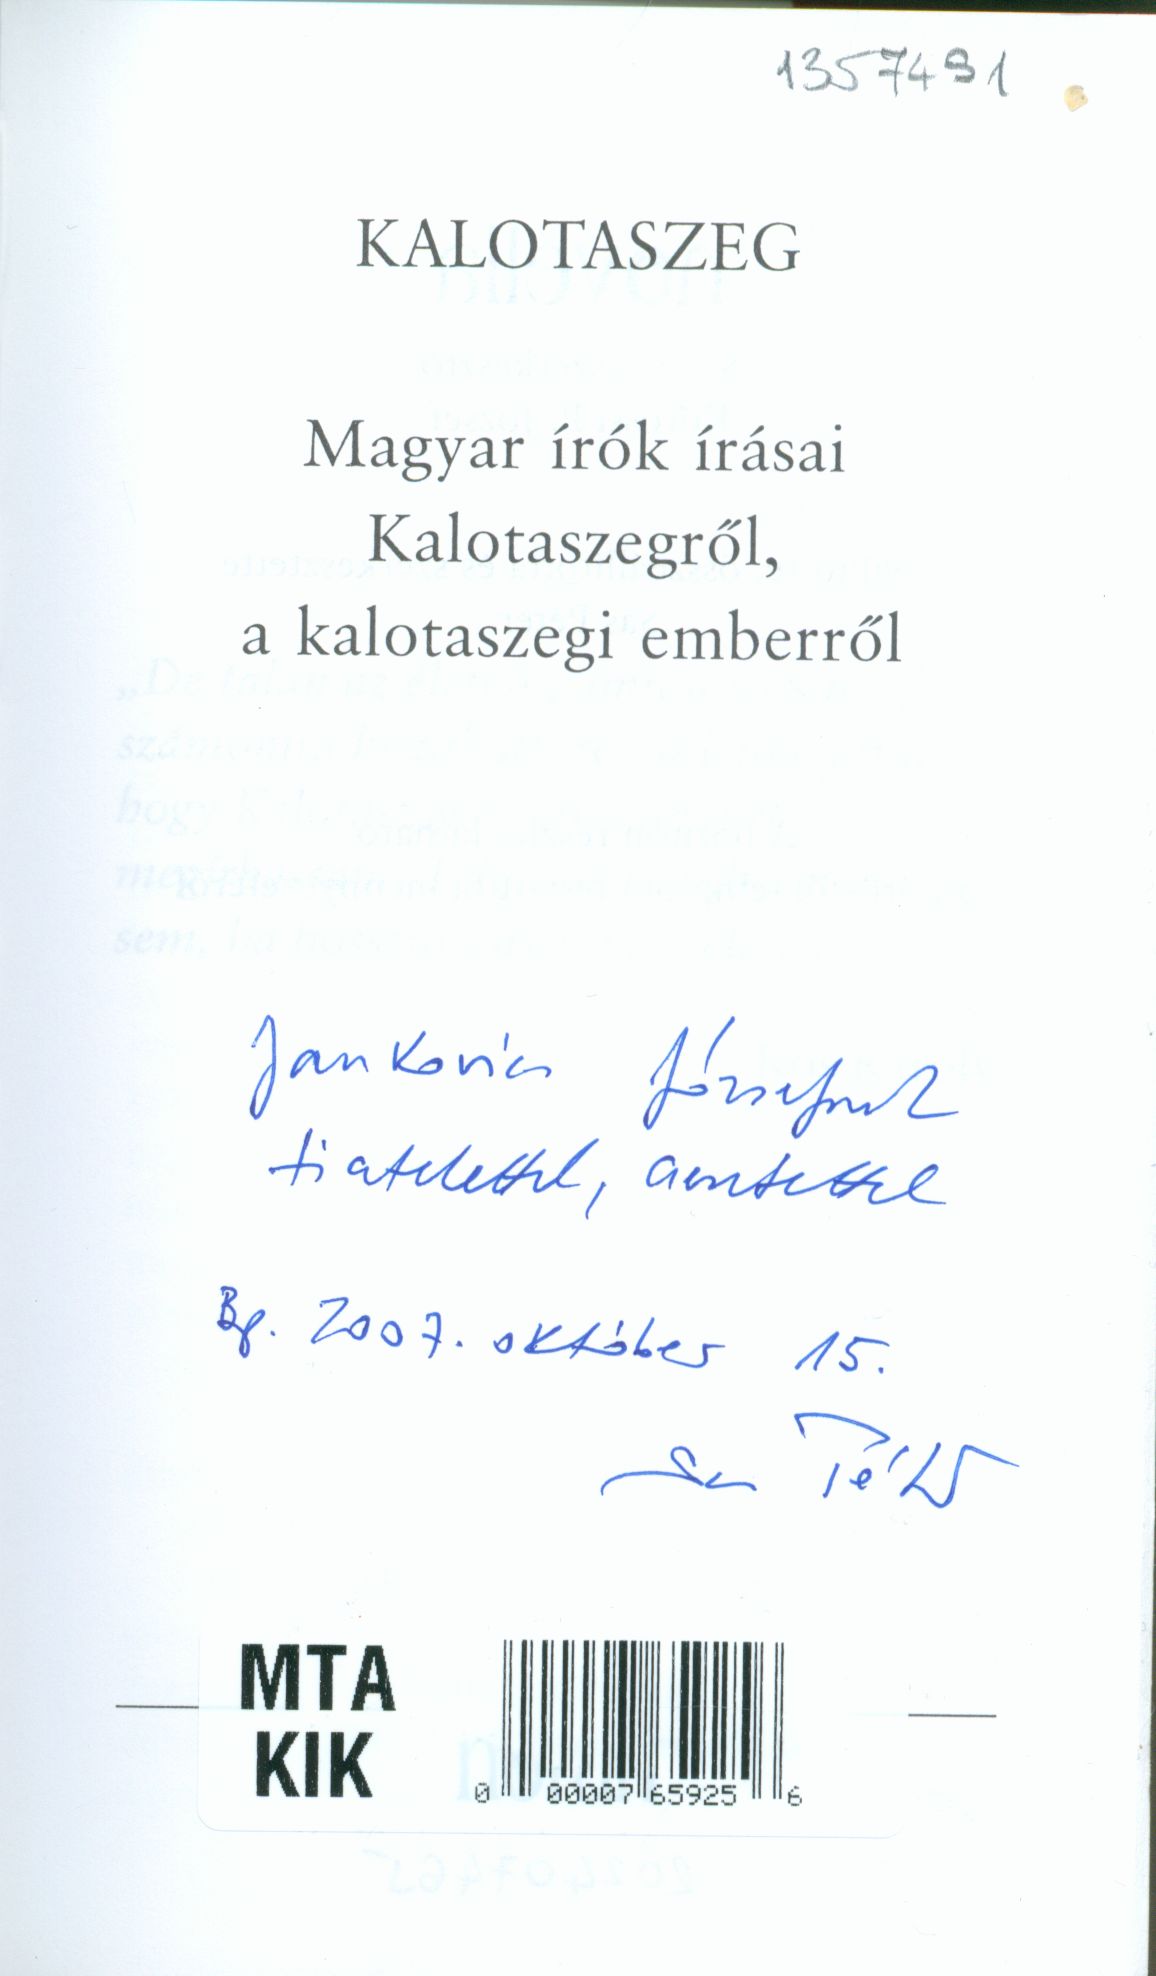 1357491
KALOTASZEG
Magyar írók írásai
Kalotaszegről,
a kalotaszegi emberről
Jankovics Józsefnek
tisztelettel, szeretettel
Bp. 2007. október 15.
Sas Péter
MTA
KIK
0 00007 65925 6